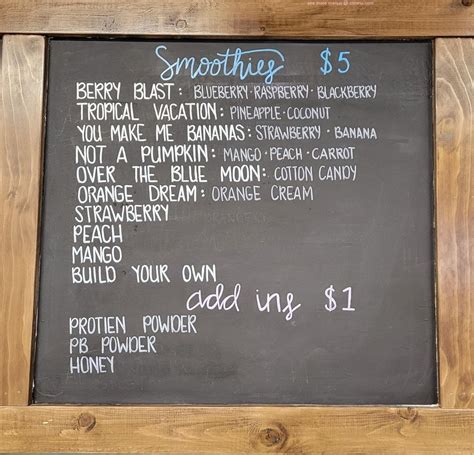 Smoothies $5
BERRY BLAST: BLUEBERRY·RASPBERRY·BLACKBERRY
TROPICAL VACATION: PINEAPPLE·COCONUT
YOU MAKE ME BANANAS: STRAWBERRY · BANANA
NOT A PUMPKIN: MANGO·PEACH·CARROT
OVER THE BLUE MOON: COTTON CANDY
ORANGE DREAM: ORANGE CREAM
STRAWBERRY
PEACH
MANGO
BUILD YOUR OWN
add ins $1
PROTIEN POWDER
PB POWDER
HONEY